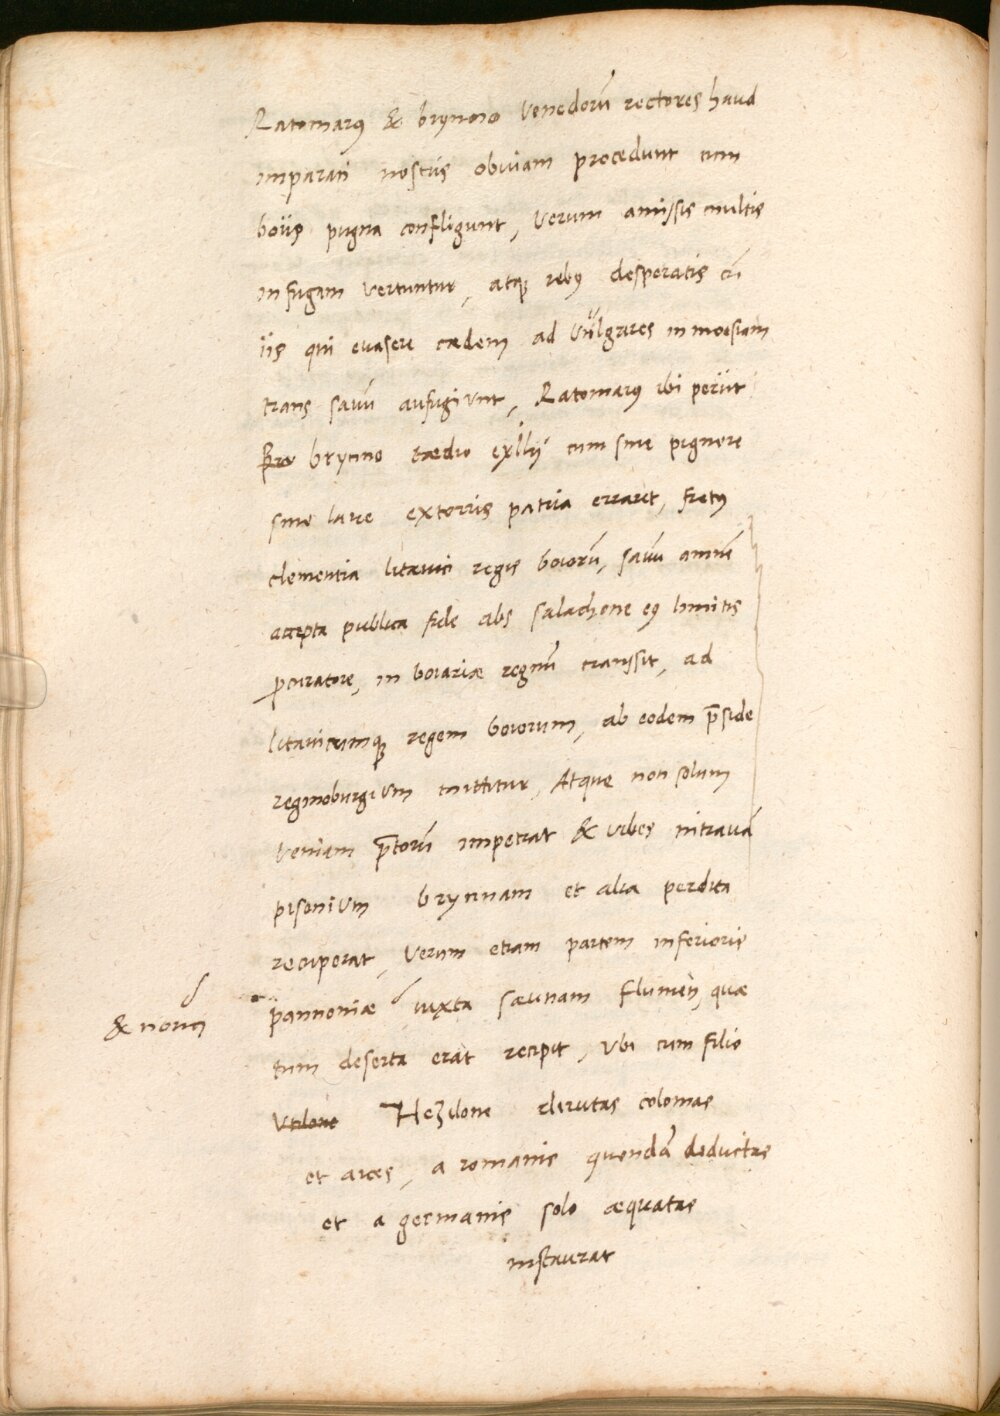 Ratomarꝰ & brynno Venedorū rectores haud
imparati nostris obviam procedunt cum
boiis pugna confligunt, Verum amissis multis
in fugam vertuntur, atqꝫ rebꝰ desperatis cū
iis qui evasere cædem ad Vulgares in moesiam
trans savū aufugiunt, Ratomarꝰ ibi periit
brynno tædio exilij cum sine pignore
sine lare extorris patria erraret, fretꝰ
clementia litavici regis boiorū, savū amnē
accepta publica fide abs salachone eꝰ limitis
ꝓcuratore, in boiariæ regnū transsit, ad
litavicumqꝫ regem boiorum, ab eodem p̄side
reginoburgium mittitur, Atque non solum
veniam p̄torū impetrat & urbes nitravā
pisonium brynnam et alia perdita
recuperat, verum etiam partem inferioris
pannoniæ iuxta sævnam flumen, quæ
& norici
tum deserta erat recipit, Vbi cum filio
Vtilone Hezilone dirutas colonias
et arces, a romanis quondā deductas
et a germanis solo æquatas
instaurat